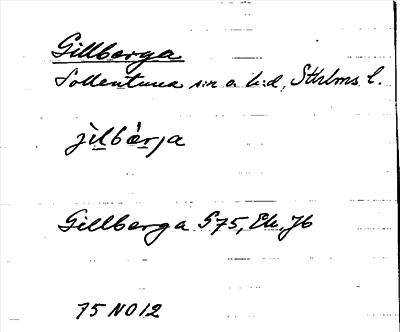 Gillberga
Sollentuna sn o h:d, Sthlms l.
jìlbǽrja
Gillberga S75, Ek, Jb
75 NO12